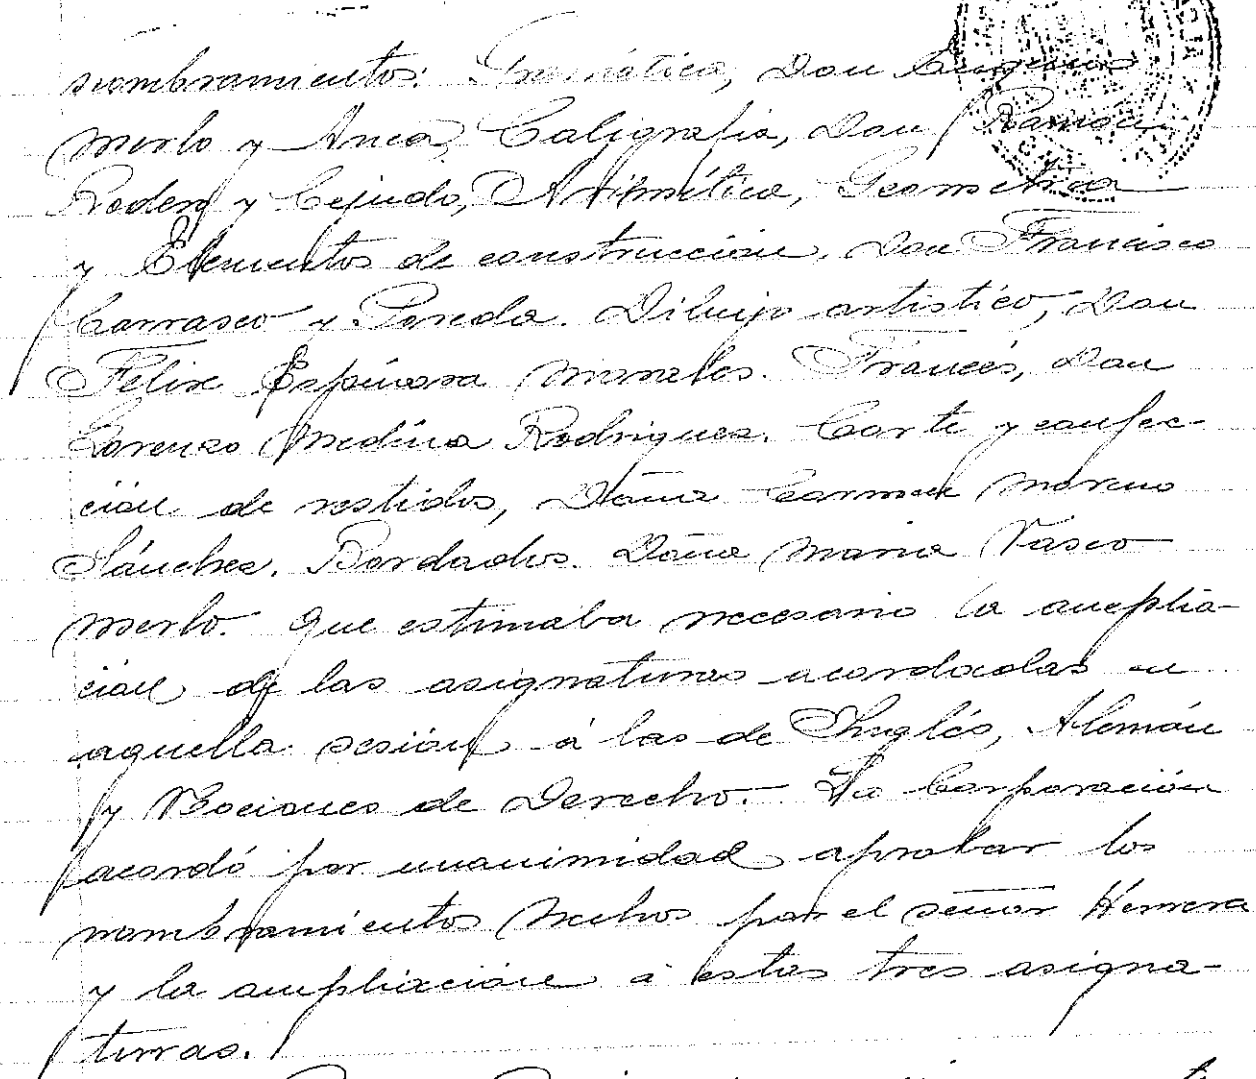 nombramientos: Gramática, Don Eugenio
Merlo y Anca, Caligrafia, Don Ramón
Roden y Cejudo, Aritmética, Geometria
y Elementos de construcción, Don Francisco
Carrasco y Poveda. Dibujo artistico, Don
Felix Espinosa Morales. Francés, Don
Lorenzo Medina Rodriguez. Corte y confec-
ción de vestidos, Doña Carmen Moreno
Sánchez. Bordados. Doña Maria Vasco
Merlo. Que estimaba necesario la amplia-
ción de las asignaturas acordadas en
aquella sesión á las de Inglés, Alemán
y Nociones de Derecho. La Corporación
acordó por unanimidad aprobar los
nombramientos hechos por el señor Herrera
y la ampliación á estas tres asigna-
turas.